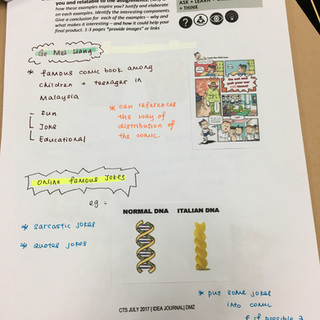 you and relatable to the assignment
how these examples inspire you? Justify and elaborate
on each examples. Identify the interesting components
Give a conclusion for each of the examples – why and
what makes it interesting – and how it could help your
find product. 1-3 pages *provide images* or links
ASK + LEARN +
+ THINK
Ge Mei Liang
* famous comic book among
children + teenager in
Malaysia
- Fun
- Joke
- Educational
* can references
the way of
distribution of
the comic.
online famous jokes
eg :
* sarcastic jokes
* quotes jokes
NORMAL DNA
ITALIAN DNA
CTS JULY 2017 | IDEA JOURNAL | DMZ
* put some jokes
into comic
if possible